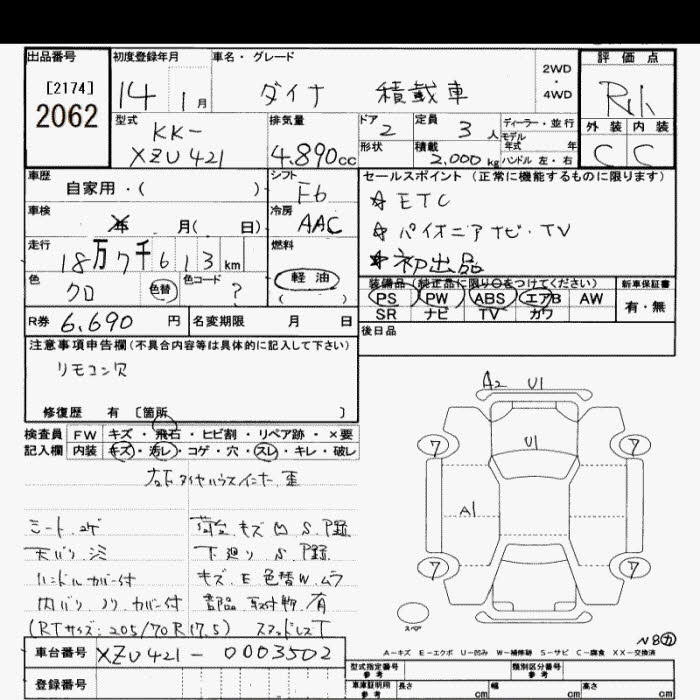 出品番号 初度登録年月 車名・グレード 評価点
[2174]
2062
14 1月 ダイナ 積載車 2WD・4WD
型式 KK-
XZU421
排気量 4.890cc
ドア 2 定員 3人 ディーラー・並行
モデル年式 年
形状 積載 2,000kg ハンドル 左・右
外装 内装
C C
車歴 自家用・( )
シフト F6
セールスポイント (正常に機能するものに限ります)
☆ETC
☆パイオニアナビ・TV
☆初出品
車検 年 月( 日)
冷房 AAC
走行 18万7千613km
燃料 軽油
( )
色 クロ 色替 色コード ?
装備品(純正品に限り○をつけてください) 新車保証書
PS PW ABS エアB AW 有・無
SR ナビ TV カワ
R券 6,690円 名変期限 月 日
後日品
注意事項申告欄(不具合内容等は具体的に記入して下さい)
リモコン欠
修復歴 有 [箇所 ]
検査員 FW キズ・飛石・ヒビ割・リペア跡・×要
記入欄 内装 キズ・汚レ・コゲ・穴・スレ・キレ・破レ
シート コゲ
天バリ シミ
ハンドルカバー付
内バリ ノリ カバー付
荷台 キズ 凹 S
下廻り S
キズ.E 色替W.ムラ
有
(RTサイズ:205/70R17.5) スタッドレスT
A2 U1
7 7
U1
A1
7 7
スペア
A-キズ E-エクボ U-凹み W-補修跡 S-サビ C-腐食 XX-交換済
車台番号 XZU421-0003502
登録番号
型式指定番号 参考 類別区分番号 参考
車庫証明用 参考 長さ cm 幅 cm 高さ cm